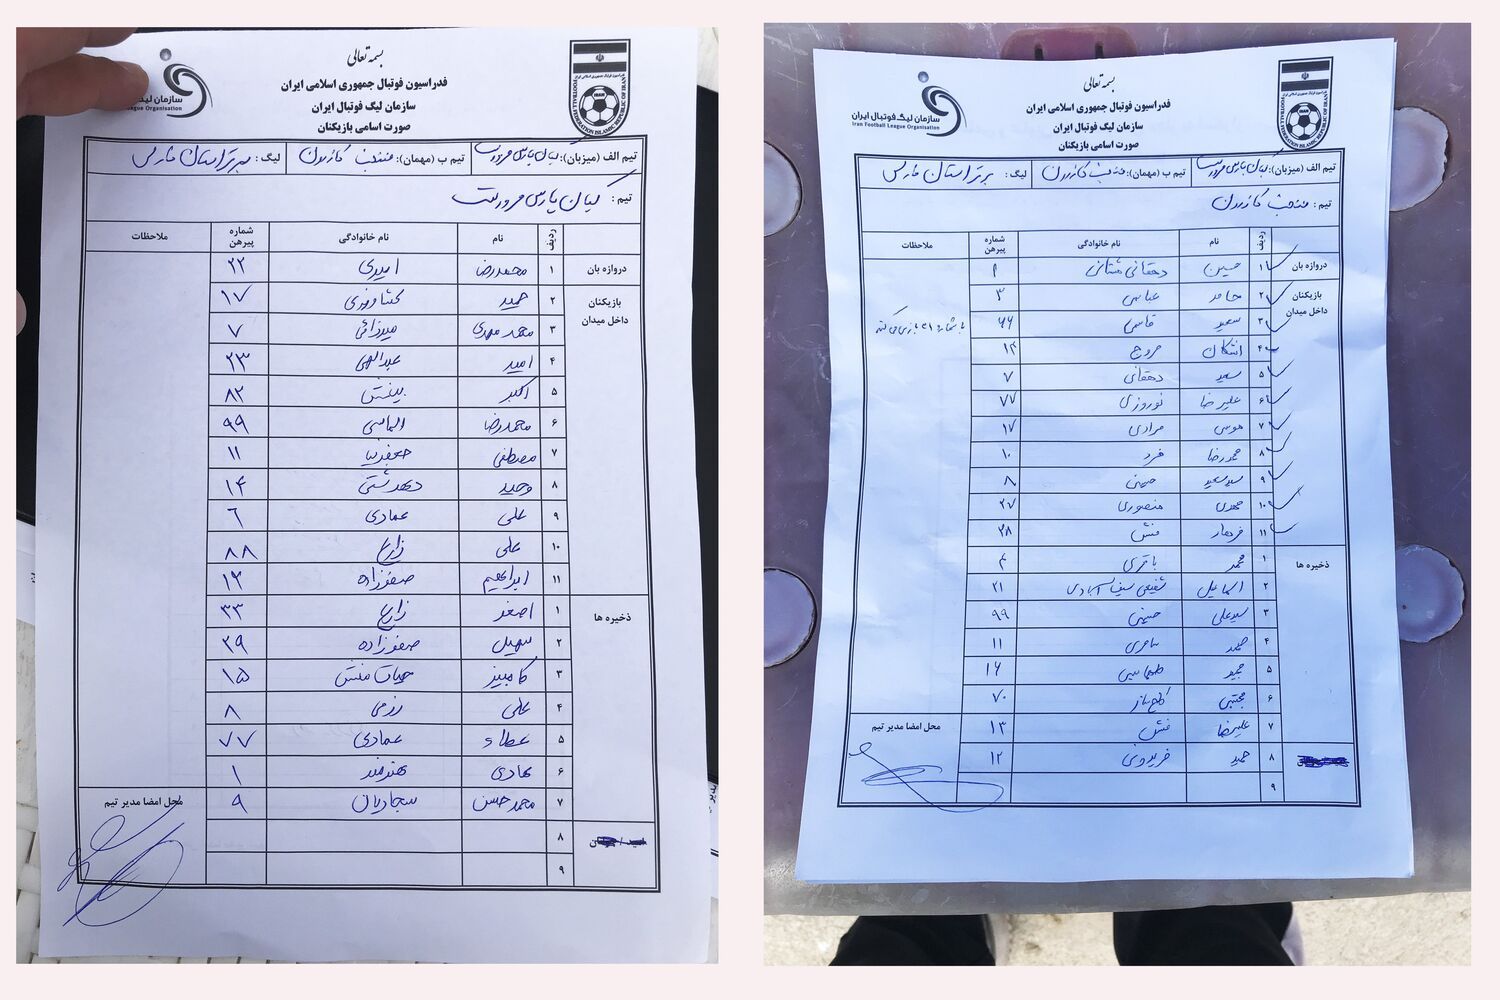 بسمه تعالی
فدراسیون فوتبال جمهوری اسلامی ایران
سازمان لیگ فوتبال ایران
صورت اسامی بازیکنان
سازمان لیگ
League Organisation
FOOTBALL FEDERATION ISLAMIC REPUBLIC OF IRAN
تیم الف (میزبان): کیان پارس مرودشت تیم ب (مهمان): منتخب کازرون لیگ : برتر استان فارس
تیم : کیان پارس مرودشت
ردیف نام نام خانوادگی شماره پیرهن ملاحظات
دروازه بان ۱ محمدرضا امیری ۲۲
بازیکنان داخل میدان ۲ حمید کشاورزی ۱۷
۳ محمد مهدی میرزائی ۷
۴ امید عبدالهی ۲۳
۵ اکبر بینش ۸۲
۶ محمدرضا الماسی ۹۹
۷ مصطفی جعفرنیا ۱۱
۸ وحید دهدشتی ۱۴
۹ علی عمادی ۶
۱۰ علی زارع ۸۸
۱۱ ابراهیم صفرزاده ۱۲
ذخیره ها ۱ اصغر زارع ۳۳
۲ سهیل صفرزاده ۳۹
۳ کامبیز حیات منش ۱۵
۴ علی رزمی ۸
۵ عطاء عمادی ۷۷
۶ هادی هنرمند ۱
۷ محمدحسن سجادیان ۹
محل امضا مدیر تیم
۸
۹
بسمه تعالی
فدراسیون فوتبال جمهوری اسلامی ایران
سازمان لیگ فوتبال ایران
صورت اسامی بازیکنان
سازمان لیگ فوتبال ایران
Iran Football League Organisation
FOOTBALL FEDERATION ISLAMIC REPUBLIC OF IRAN
تیم الف (میزبان): کیان پارس مرودشت تیم ب (مهمان): منتخب کازرون لیگ : برتر استان فارس
تیم : منتخب کازرون
ردیف نام نام خانوادگی شماره پیرهن ملاحظات
دروازه بان ۱ حسین دهقانی ۱
بازیکنان داخل میدان ۲ حامد عباسی ۳
۳ سعید قاسمی ۶۶ با شماره ۲۱ بازی می کند
۴ اشکان مروج ۱۴
۵ سعید دهقانی ۷
۶ علیرضا نوروزی ۷۷
۷ موسی مرادی ۱۷
۸ محمدرضا فرد ۱۰
۹ سیدسعید حسینی ۸
۱۰ مهدی منصوری ۲۷
۱۱ فرهاد منش ۲۸
ذخیره ها ۱ محمد باقری ۴
۲ اسماعیل شفیعی ۲۱
۳ سیدعلی حسینی ۹۹
۴ صمد سامری ۱۱
۵ طهماسبی ۱۶
۶ مجتبی ۷۰
۷ علیرضا منش ۱۳
محل امضا مدیر تیم
۸ حمید فریدونی ۱۲
۹